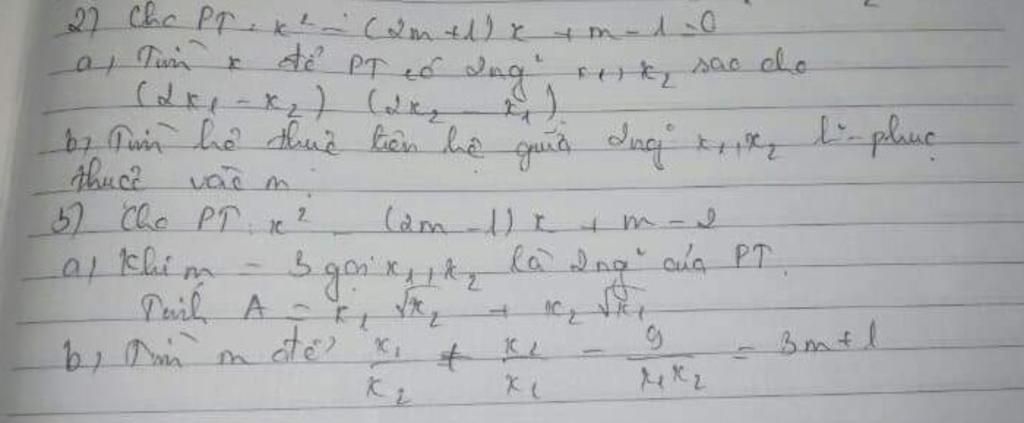 2) Cho PT: x² - (2m+1)x + m - 1 = 0
a, Tìm x để PT có 2ng° x₁, x₂ sao cho
(2x₁ - x₂) (2x₂ - x₁)
b, Tìm hệ thức liên hệ giữa 2ng° x₁, x₂ k° phục
thuộc vào m.
3) Cho PT: x² - (2m-1)x + m - 2
a, Khi m = 3 gọi x₁, x₂ là 2ng° của PT.
Tính A = x₁ √x₂ + x₂ √x₁
b, Tìm m để x₁/x₂ + x₂/x₁ - 9/x₁x₂ = 3m+1